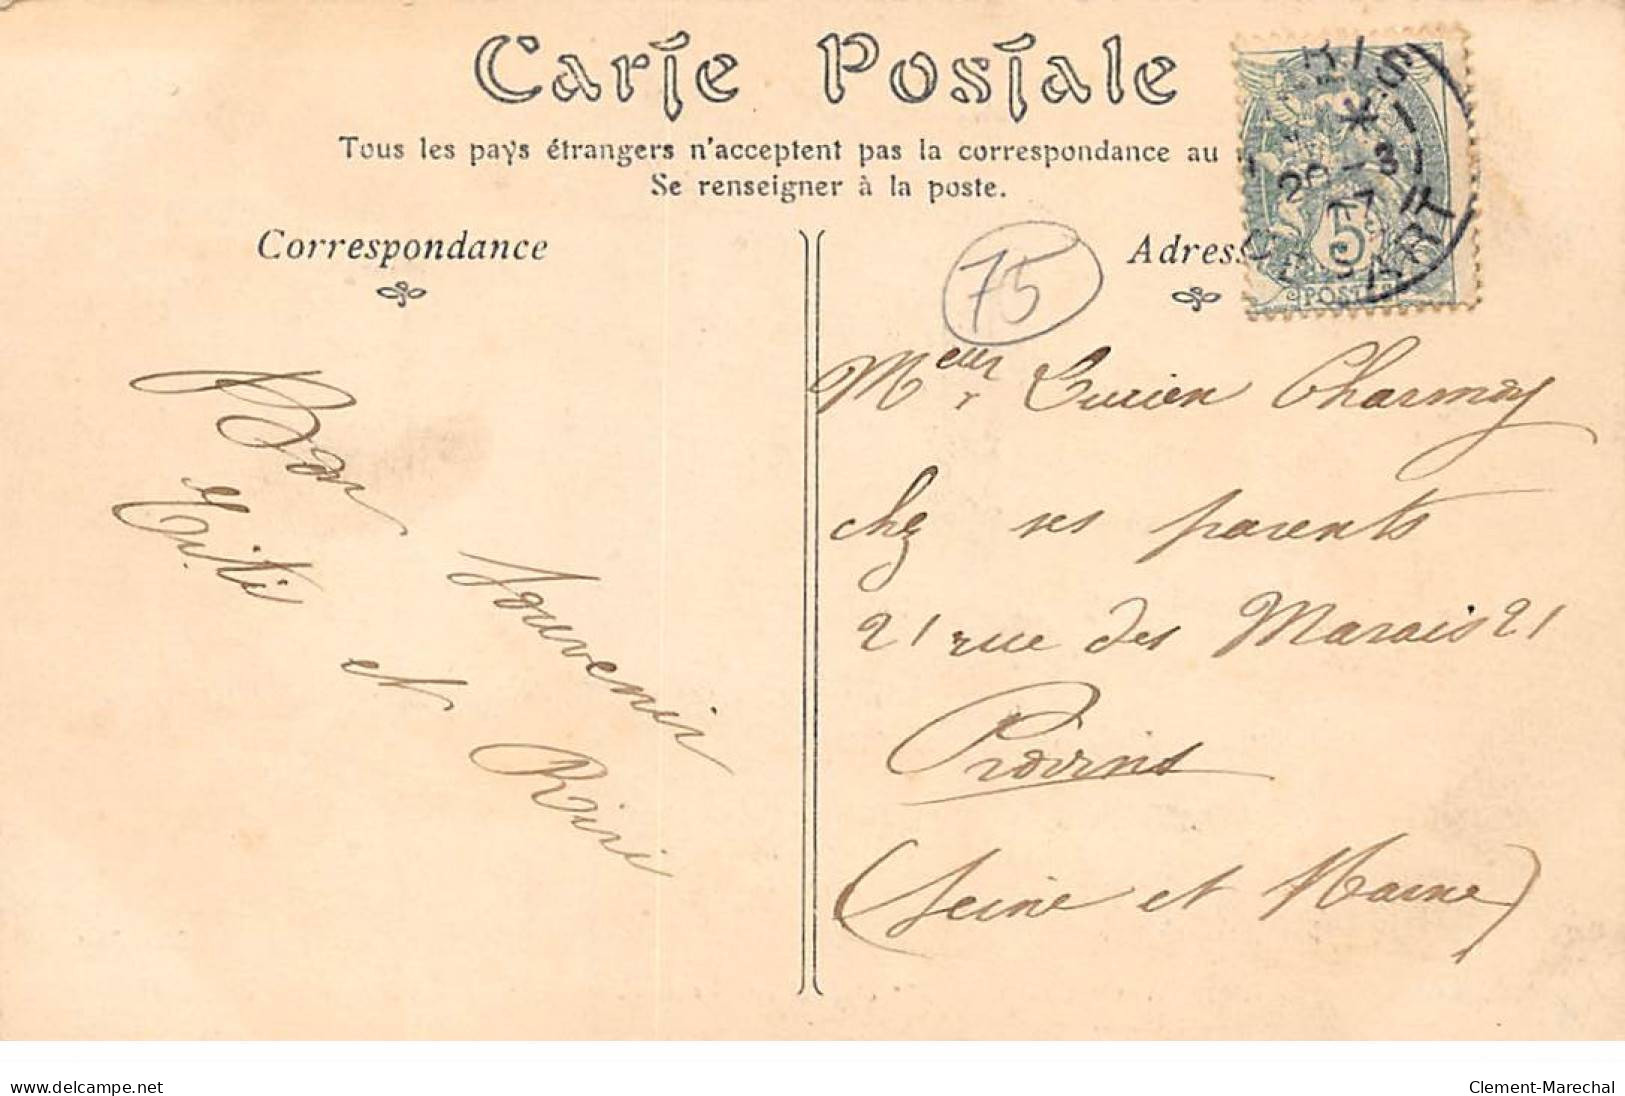 Carte Postale
Tous les pays étrangers n'acceptent pas la correspondance au
Se renseigner à la poste.
Correspondance
Adress
75
RIS
20 - 3
07
DEPART
5
POSTES
Bon Souvenir
Titi et Riri
Mr eur Lucien Charmoy
chez ses parents
21 rue des Marais 21
Provins
(Seine et Marne)
www.delcampe.net
Clement-Marechal